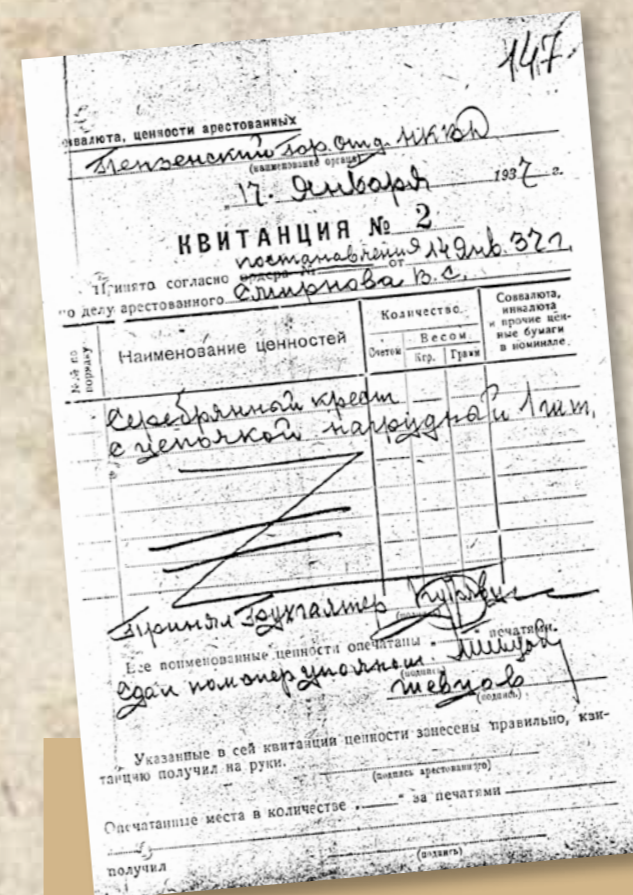 147.
оввалюта, ценности арестованных
Пензенский гор. отд. НКВД
(наименование органа)
17. Января 1937 г.
КВИТАНЦИЯ № 2
постановления 14 янв. 37 г.
Принято согласно ордера № от
по делу арестованного Смирнова В. С.
№№ по порядку
Наименование ценностей
Количество
Счетом
Весом
Кгр.
Грамм
Соввалюта, инвалюта и прочие ценные бумаги в номинале
Серебрянный крест
с цепочкой нагрудный 1 шт.
Принял Бухгалтер
Все поименованные ценности опечатаны печатями.
Сдал
(подпись)
Шевцов
(подпись)
Указанные в сей квитанции ценности занесены правильно, кви-
танцию получил на руки.
(подпись арестованного)
Опечатанные места в количестве „ “ за печатями
получил
(подпись)